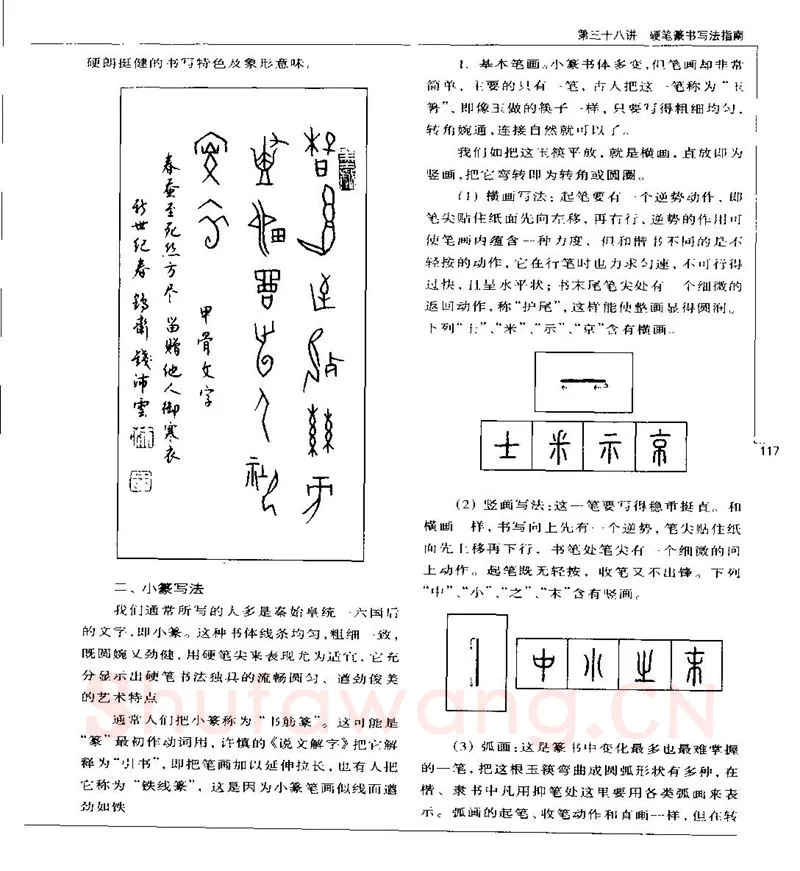 第三十八讲 硬笔篆书写法指南
硬朗挺健的书写特色及象形意味。
春蚕至死丝方尽 留赠他人御寒衣
甲骨文字
新世纪春 钱沛雲
二、小篆写法
我们通常所写的大多是秦始皇统一六国后
的文字,即小篆。这种书体线条均匀,粗细一致,
既圆婉又劲健,用硬笔尖来表现尤为适宜,它充
分显示出硬笔书法独具的流畅圆匀、遒劲俊美
的艺术特点
通常人们把小篆称为“书筋篆”。这可能是
“篆”最初作动词用,许慎的《说文解字》把它解
释为“引书”,即把笔画加以延伸拉长,也有人把
它称为“铁线篆”,这是因为小篆笔画似线而遒
劲如铁
1. 基本笔画。小篆书体多变,但笔画却非常
简单,主要的只有一笔,古人把这一笔称为“玉
箸”,即像玉做的筷子一样,只要写得粗细均匀,
转角婉通,连接自然就可以了。
我们如把这玉筷平放,就是横画,直放即为
竖画,把它弯转即为转角或圆圈。
(1) 横画写法:起笔要有一个逆势动作,即
笔尖贴住纸面先向左移,再右行、逆势的作用可
使笔画内蕴含一种力度、但和楷书不同的是不
轻按的动作,它在行笔时也力求匀速,不可行得
过快,且呈水平状;书末尾笔尖处有一个细微的
返回动作,称“护尾”,这样能使整画显得圆润。
下列“士”、“米”、“示”、“京”含有横画。
士 米 示 京
117
(2) 竖画写法:这一笔要写得稳重挺直。和
横画一样,书写向上先有一个逆势,笔尖贴住纸
面先上移再下行,书笔处笔尖有一个细微的向
上动作。起笔既无轻按,收笔又不出锋。下列
“中”、“小”、“之”、“末”含有竖画。
中 小 之 末
(3) 弧画:这是篆书中变化最多也最难掌握
的一笔,把这根玉筷弯曲成圆弧形状有多种,在
楷、隶书中凡用抑笔处这里要用各类弧画来表
示。弧画的起笔、收笔动作和直画一样,但在转
Shufawang.CN